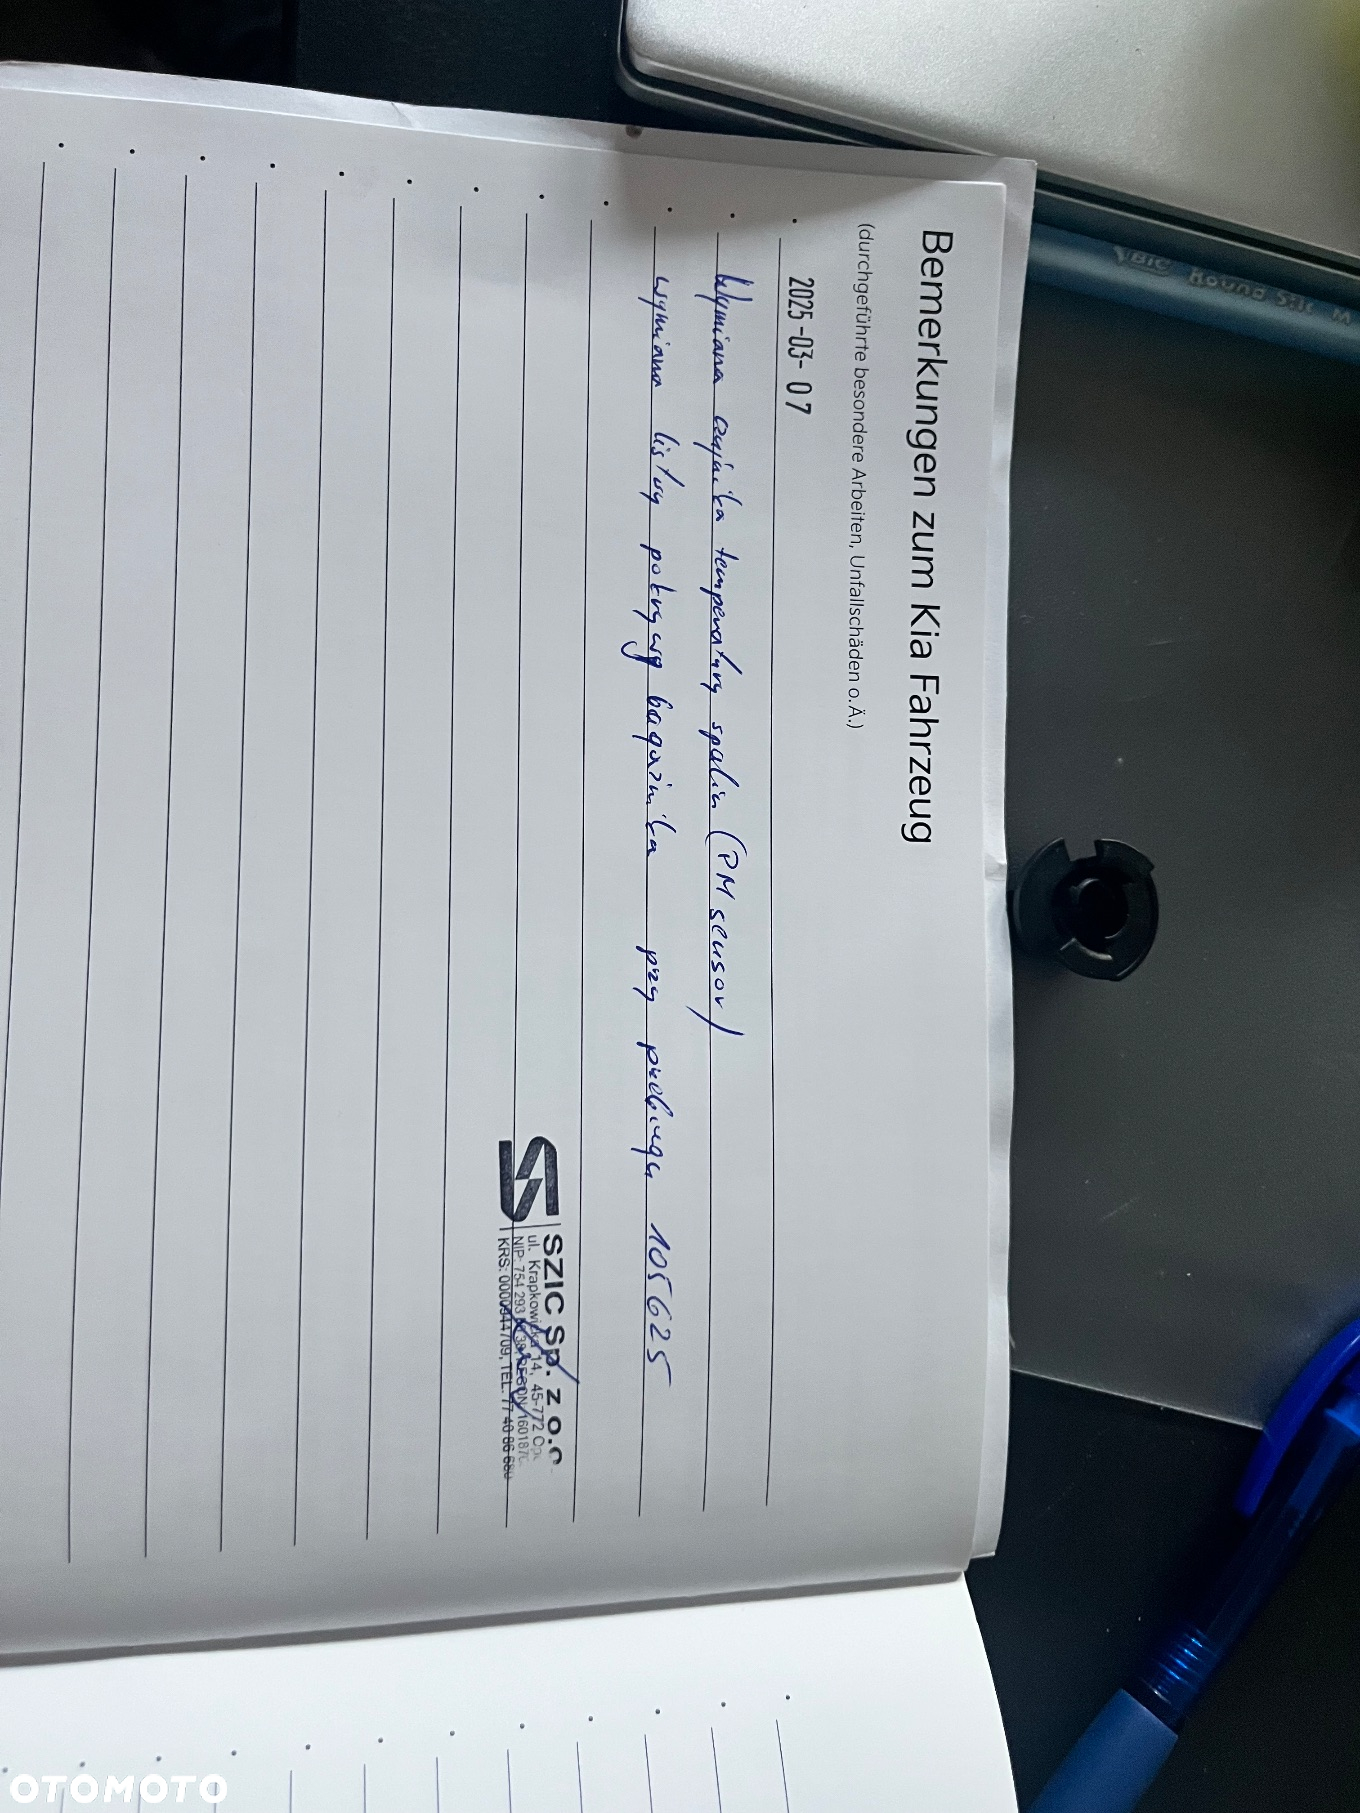 Bemerkungen zum Kia Fahrzeug
(durchgeführte besondere Arbeiten, Unfallschäden o.Ä.)
2025-03-07
Wymiana czujnika temperatury spalin (PM sensor)
wymiana listwy pokrywy bagażnika przy przebiegu 105625
SZIC Sp. z o.o
ul. Krapkowicka 14, 45-772 Op
NIP: 754 293 REGON 160187
KRS: 0000944709, TEL. 77 40 66 680
BIC Round Stic M
OTOMOTO